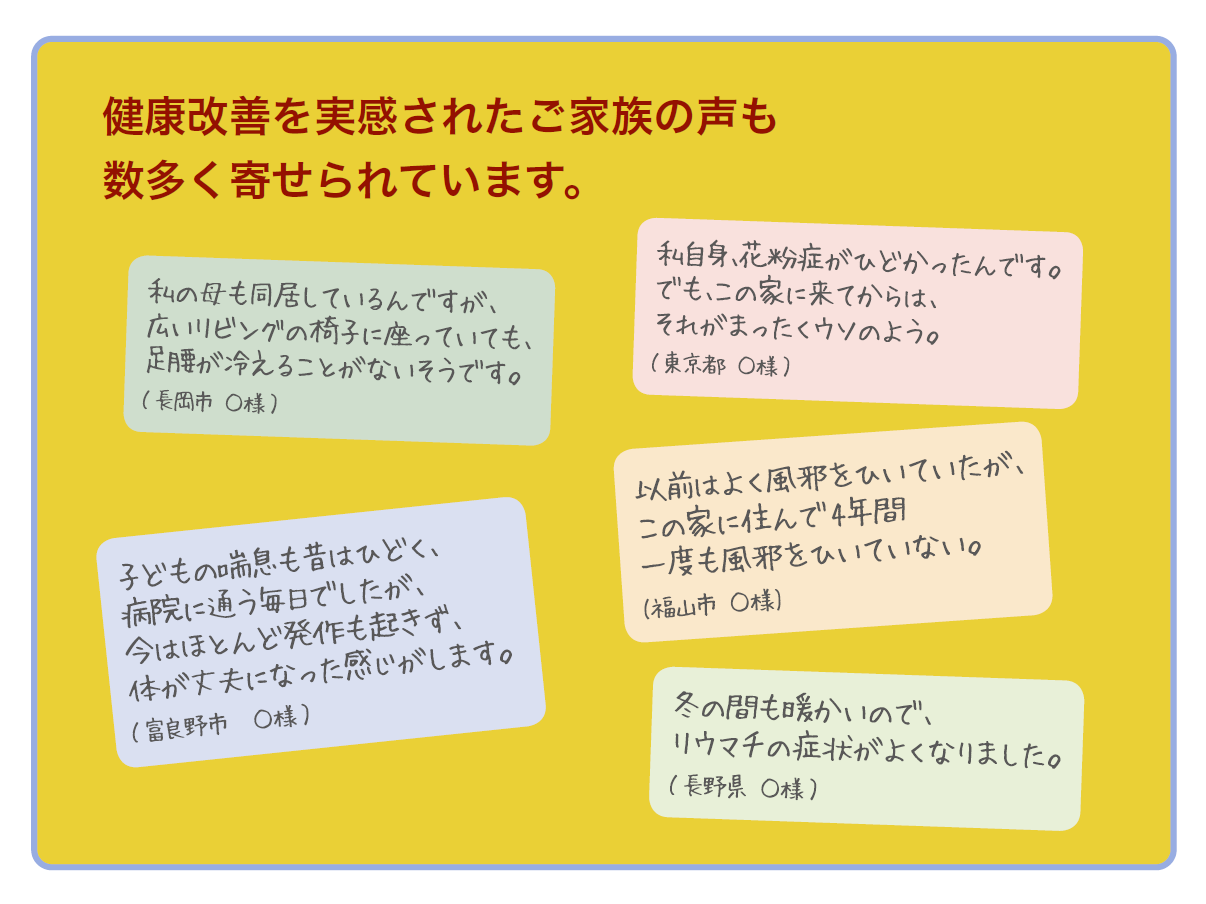 健康改善を実感されたご家族の声も
数多く寄せられています。
私の母も同居しているんですが、
広いリビングの椅子に座っていても、
足腰が冷えることがないそうです。
(長岡市 〇様)
私自身、花粉症がひどかったんです。
でも、この家に来てからは、
それがまったくウソのよう。
(東京都 〇様)
以前はよく風邪をひいていたが、
この家に住んで4年間
一度も風邪をひいていない。
(福山市 〇様)
子どもの喘息も昔はひどく、
病院に通う毎日でしたが、
今はほとんど発作も起きず、
体が丈夫になった感じがします。
(富良野市 〇様)
冬の間も暖かいので、
リウマチの症状がよくなりました。
(長野県 〇様)